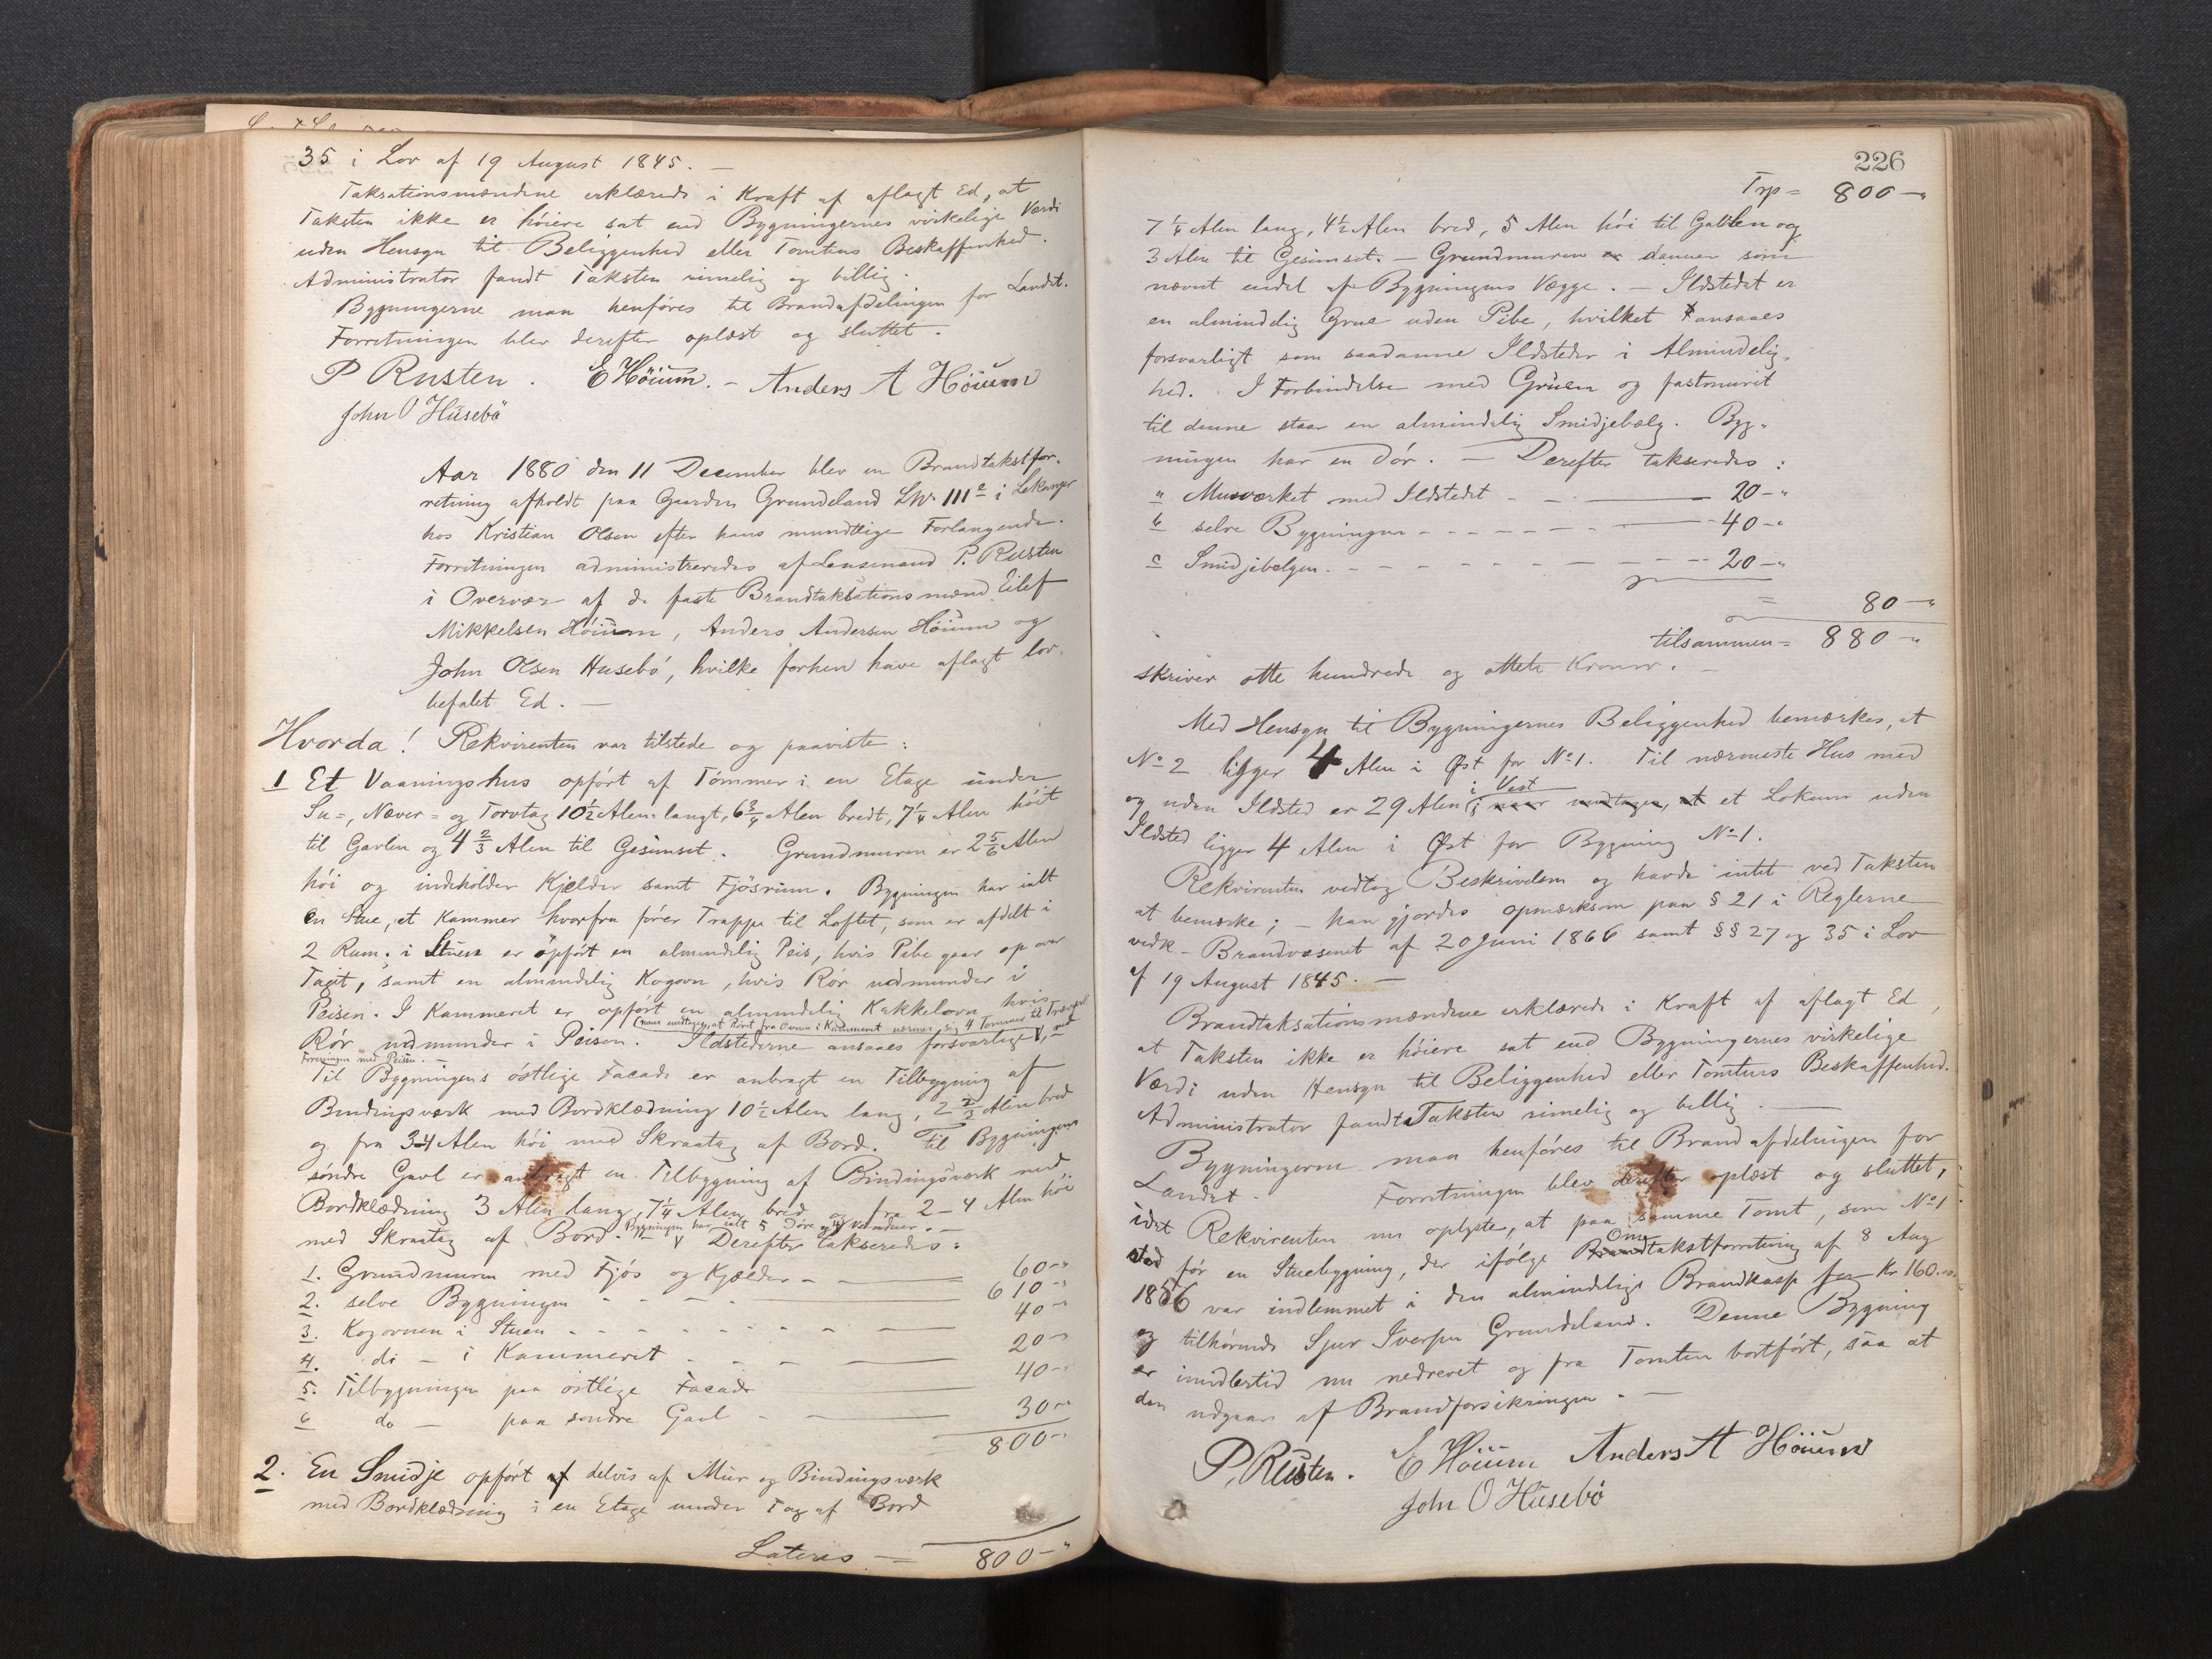 35 i Lov af 19 August 1845. —
Taksationsmændene erklærede i Kraft af aflagt Ed, at
Taksten ikke er høiere sat end Bygningernes virkelige Værdi
uden Hensyn til Beliggenhed eller Tomtens Beskaffenhed.
Administrator fandt Taksten rimelig og billig.
Bygningerne maa henføres til Brandafdelingen for Landet.
Forretningen blev derefter oplæst og sluttet.
P Rusten. E Høium. – Anders A Høium
John O Husebø
Aar 1880 den 11 December blev en Brandtakstfor-
retning afholdt paa Gaarden Grundeland Lnr 111 a i Lekanger
hos Kristian Olsen efter hans mundtlige Forlangende.
Forretningen administreredes af Lensmand P. Rusten
i Overvær af de faste Brandtaksationsmænd Eilef
Mikkelsen Høium, Anders Andersen Høium og
John Olsen Husebø, hvilke forhen have aflagt lov-
befalet Ed. —
Hvorda! Rekvirenten var tilstede og paaviste:
1 Et Vaaningshus opført af Tømmer i en Etage under
Su-, Næver- og Torvtag 10½ Alen langt, 6¾ Alen bredt, 7¼ Alen høit
til Gavlen og 4⅔ Alen til Gesimset. Grundmuren er 2⅚ Alen
høi og indeholder Kjelder samt Fjøsrum. Bygningen har ialt
en Stue, et Kammer hvorfra fører Trappe til Loftet, som er afdelt i
2 Rum; i Stuen er opført en almindelig Peis, hvis Pibe gaar op over
Taget, samt en almindelig Kogovn, hvis Rør udmunder i
Peisen. I Kammeret er opført en almindelig Kakkelovn hvis
(naar undtages, at Røret fra Ovnen i Kammeret nærmer sig 4 Tommer til Træværk
Rør udmunder i Peisen. Ildstederne ansaaes forsvarlige, ved
Foreningen med Peisen. —
Til Bygningens østlige Facade er anbragt en Tilbygning af
Bindingsværk med Bordklædning 10½ Alen lang, 2⅔ Alen bred
og fra 3-4 Alen høi med Skraatag af Bord. Til Bygningens
søndre Gavl er anbragt en Tilbygning af Bindingsværk med
Bordklædning 3 Alen lang, 7¼ Alen bred og fra 2–4 Alen høi
Bygningen har ialt 5 Døre og Vinduer. —
med Skraatag af Bord. Derefter takseredes:
1. Grundmuren med Fjøs og Kjælder – 60-"
2. selve Bygningen 610-"
3. Kogovnen i Stuen 40-"
4. do – i Kammeret 20-"
5. Tilbygningen paa østlige Facade 40-"
6 do – paa søndre Gavl 30-"
800-"
2. En Smidje opført af delvis af Mur og Bindingsværk
med Bordklædning i en Etage under Tag af Bord
Lateris — 800-"
226
Trp = 800-"
7¼ Alen lang, 4½ Alen bred, 5 Alen høi til Gavlen og
3 Alen til Gesimset. – Grundmuren er danner som
nævnt endel af Bygningens Vægge. – Ildstedet er
en almindelig Grue uden Pibe, hvilket ansaaes
forsvarligt som saadanne Ildsteder i Almindelig-
hed. I Forbindelse med Gruen og fastmuret
til denne staar en almindelig Smidjebælg. Byg-
ningen har en Dør. — Derefter takseredes:
a Murværket med Ildstedet 20-"
b selve Bygningen 40-"
c Smidjebelgen. 20-"
= 80-"
tilsammen = 880-"
skriver otte hundrede og ottete Kroner. —
Med Hensyn til Bygningernes Beliggenhed bemærkes, at
No 2 ligger 4 Alen i Øst for No 1. Til nærmeste Hus med
i Vest
og uden Ildsted er 29 Alen naar undtages, at et Lokum uden
Ildsted ligger 4 Alen i Øst for Bygning No 1.
Rekvirenten vedtog Beskrivelsen og havde intet ved Taksten
at bemærke; – han gjordes opmærksom paa § 21 i Reglerne
vedk. Brandvæsenet af 20 Juni 1866 samt §§ 27 og 35 i Lov
af 19 August 1845. —
Brandtaksationsmændene erklærede i Kraft af aflagt Ed,
at Taksten ikke er høiere sat end Bygningernes virkelige
Værdi uden Hensyn til Beliggenhed eller Tomtens Beskaffenhed.
Administrator fandt Taksten rimelig og billig. —
Bygningerne maa henføres til Brandafdelingen for
Landet. Forretningen blev derefter oplæst og sluttet,
idet Rekvirenten nu oplyste, at paa samme Tomt, som No 1
Om
stod før en Stuebygning, der ifølge Brandtakstforretning af 8 Aug
1856 var indlemmet i den almindelige Brandkasse for Kr 160.
og tilhørende Sjur Iversen Grundeland. Denne Bygning
er imidlertid nu nedrevet og fra Tomten bortført, saa at
den udgaar af Brandforsikringen. —
P. Rusten. E Høium Anders A Høium
John O Husebø